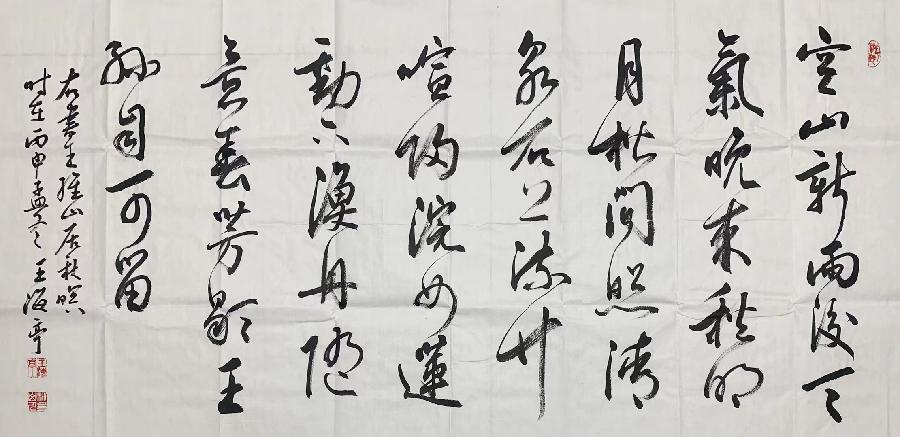 空山新雨後天
氣晚来秋明
月松間照清
泉石上流竹
喧歸浣女蓮
動下漁舟随
意春芳歇王
孫自可留
右書王維山居秋暝
时在丙申孟冬 王海亭